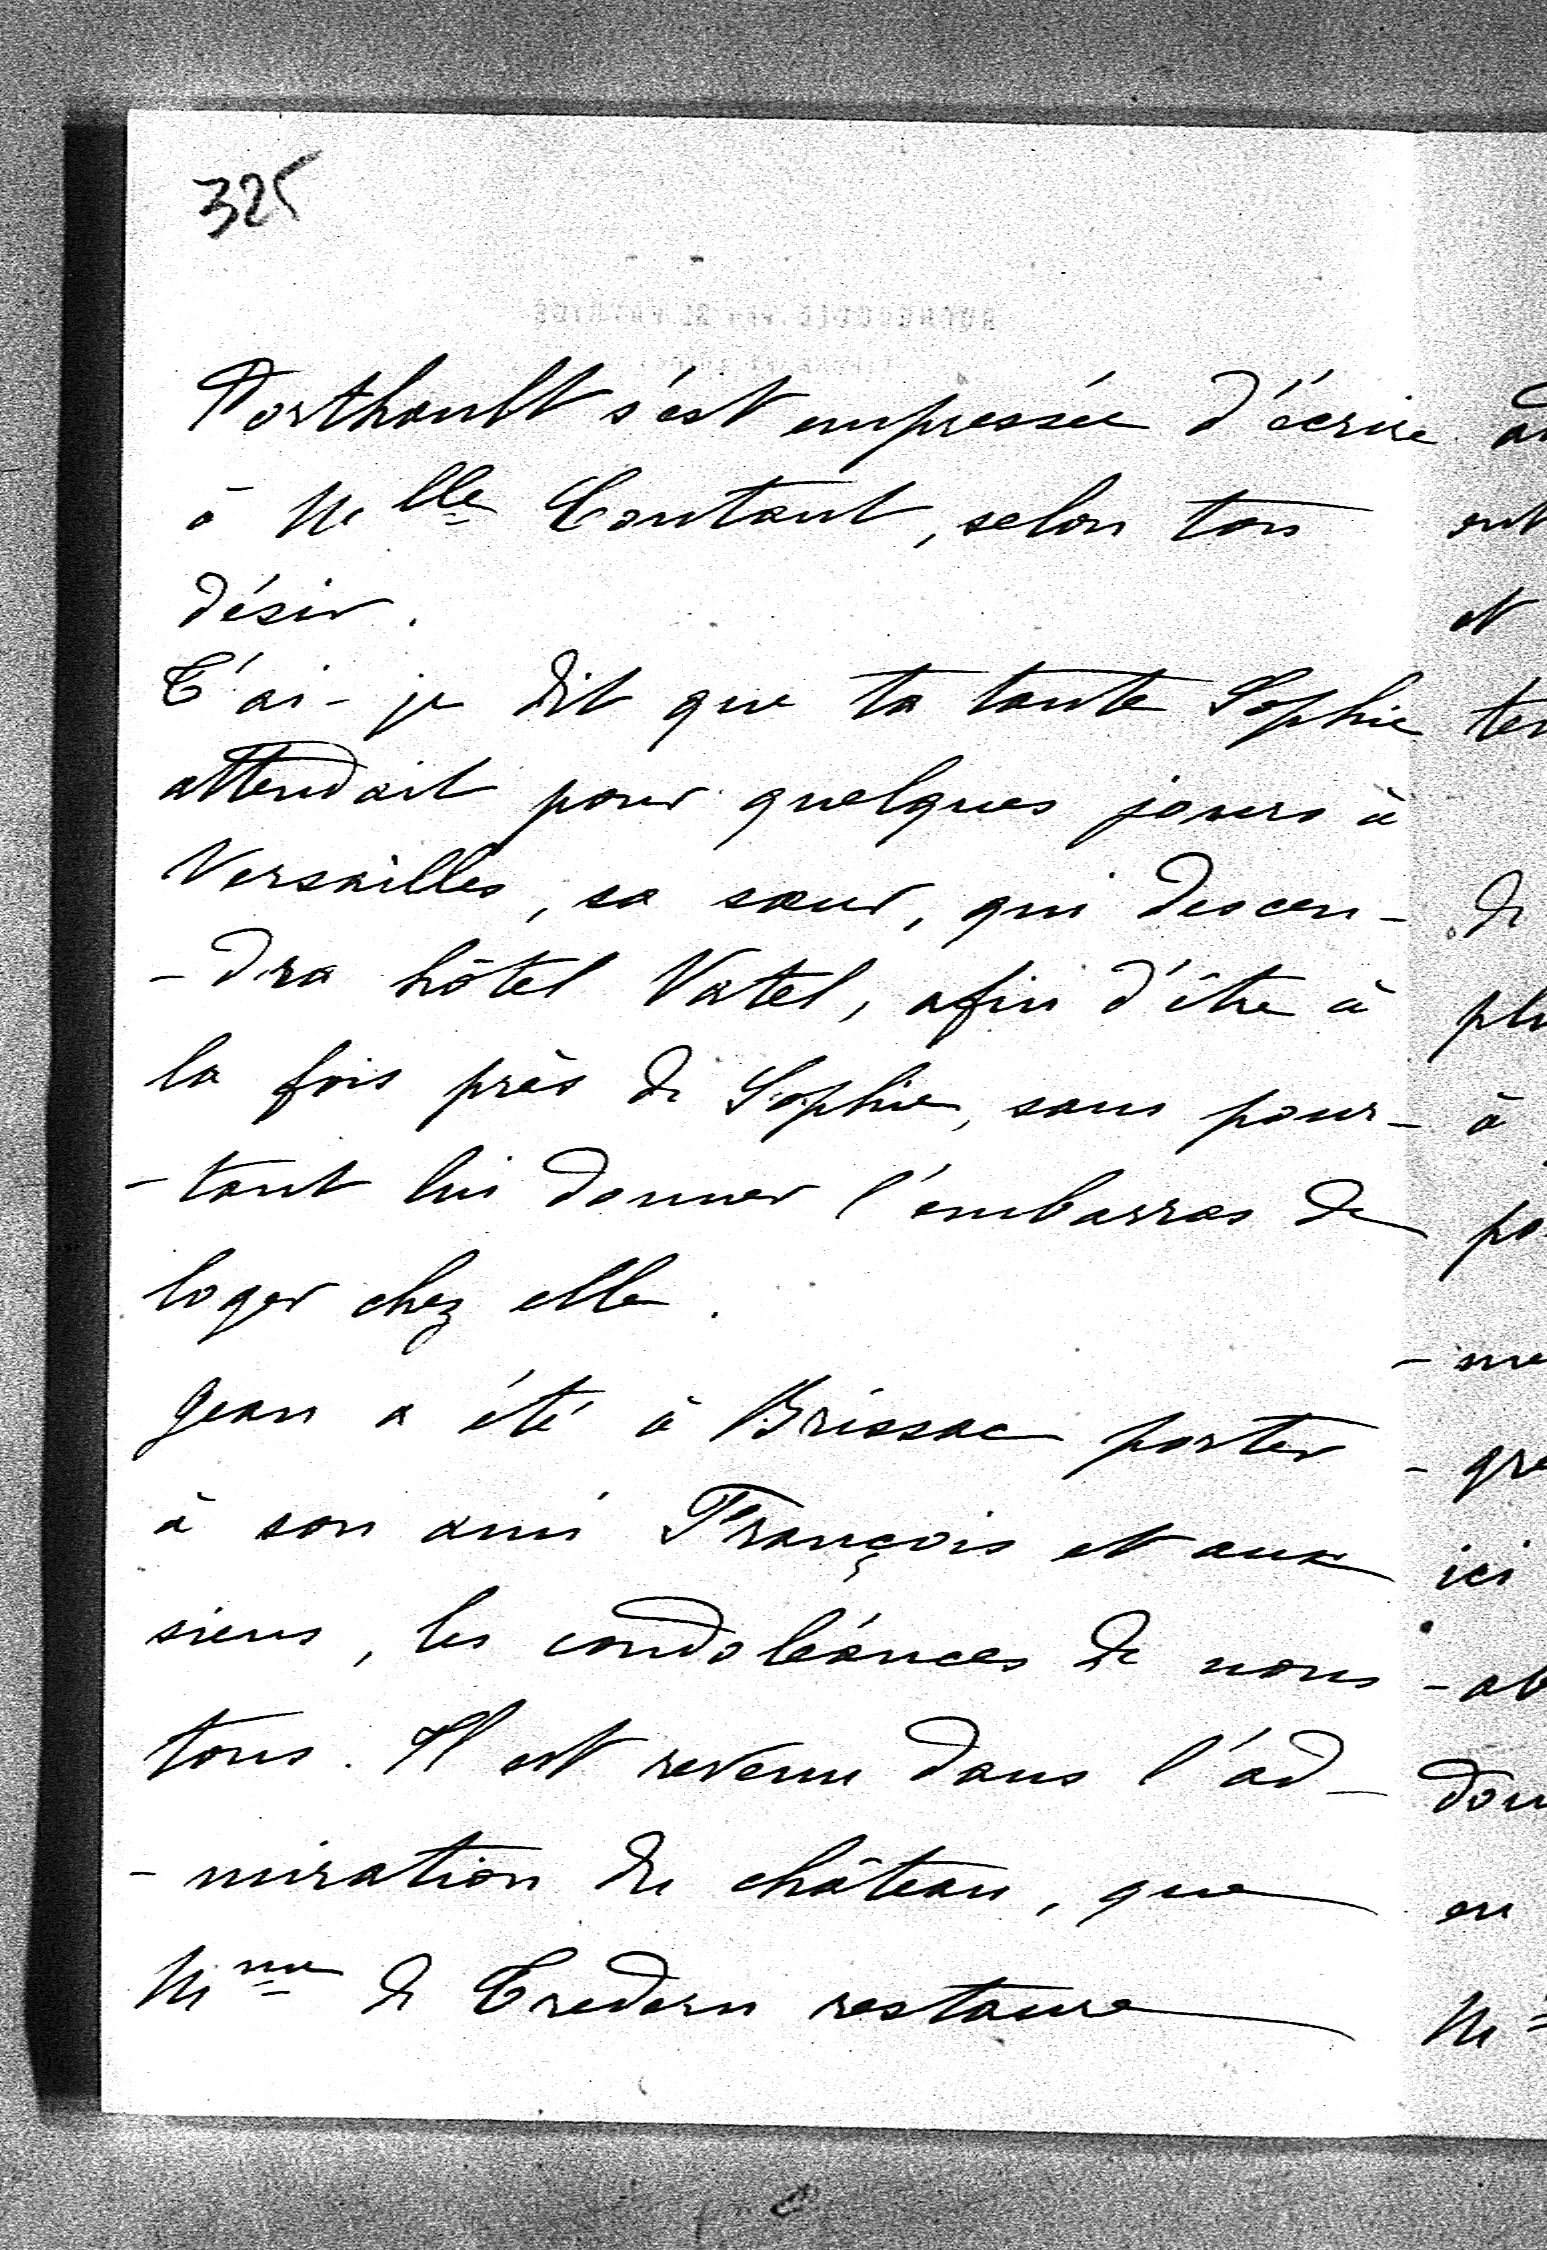 325
Porthault s'est empressée d'écrire
à Mlle Coutant, selon ton
désir.
T'ai-je dit que ta tante Sophie
attendait pour quelques jours à
Versailles, sa sœur, qui descen-
-dra hôtel Vatel, afin d'être à
la fois près de Sophie, sans pour-
-tant lui donner l'embarras de
loger chez elle.
Jean a été à Brissac porter
à son ami François et aux
siens, les condoléances de nous
tous. Il est revenu dans l'ad-
-miration du château, que
Mme de Tredern restaure
et
de
à
ici
en